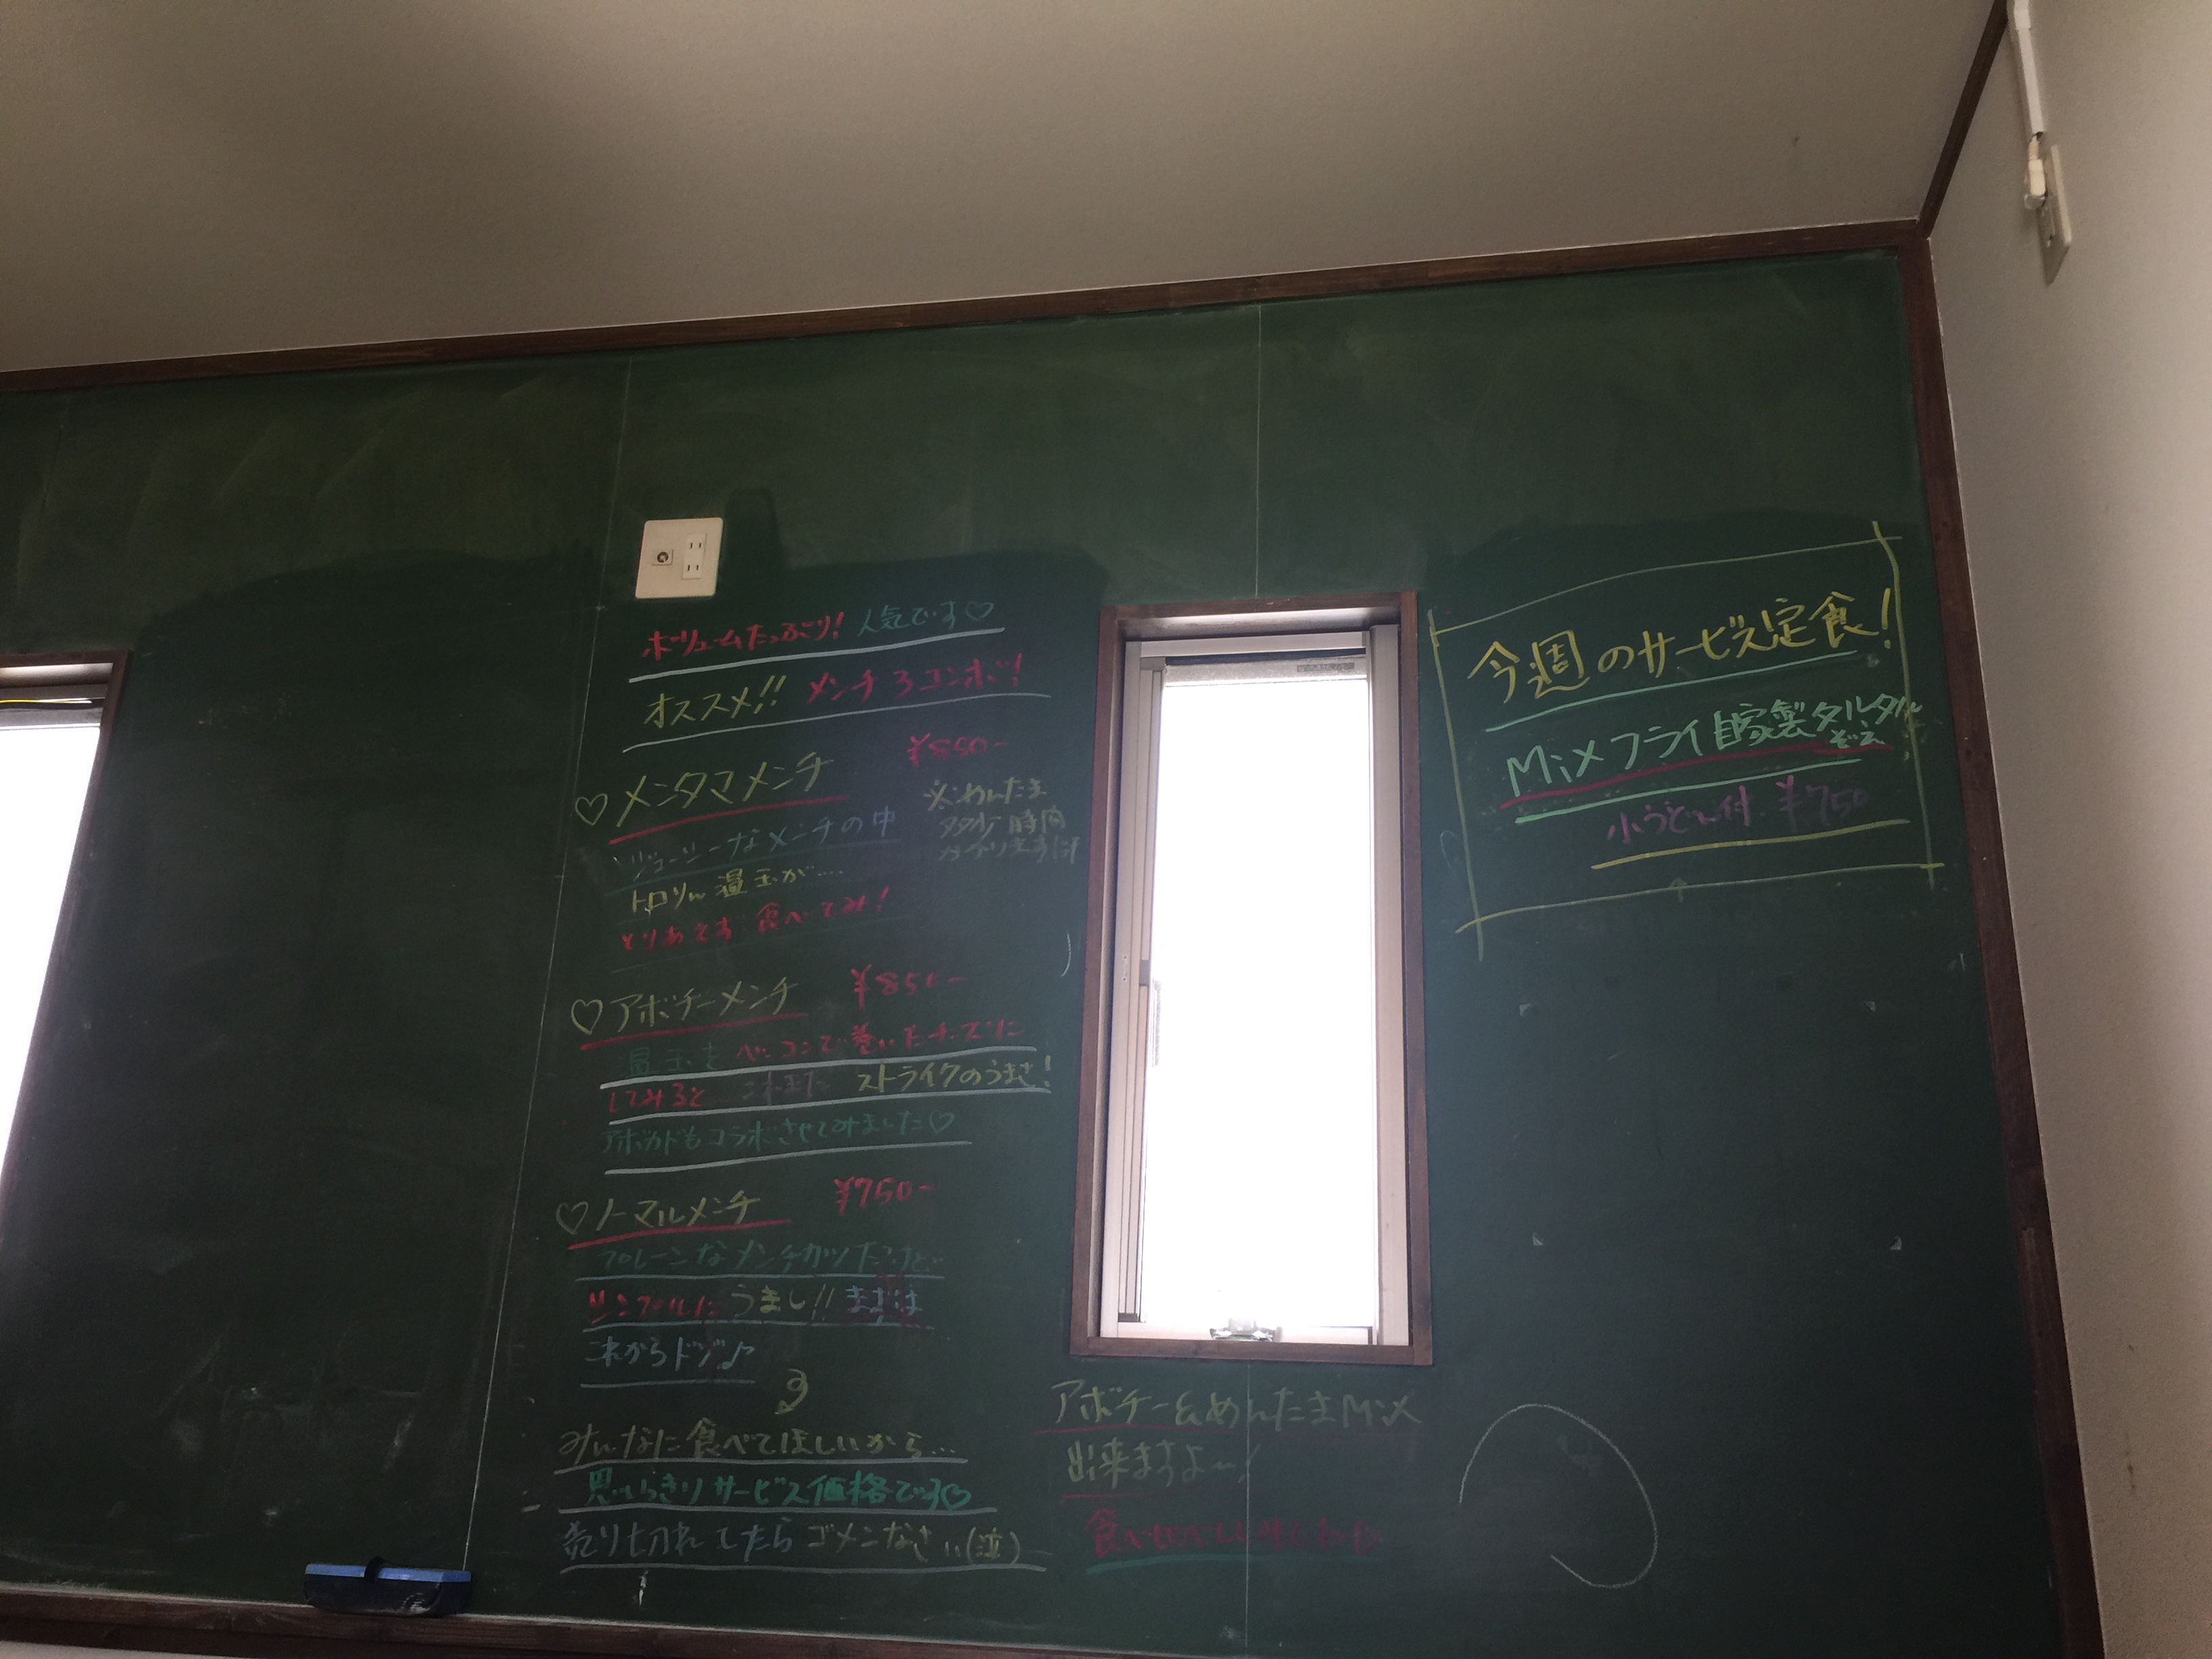 ボリュームたっぷり! 人気です♡
オススメ!! メンチ3コンボ!
♡メンタマメンチ ¥850-
※めんたま
多少時間
かかりますけ
ジューシーなメンチの中
トロりん温玉が....
とりあえず 食べてみ!
♡アボチーメンチ ¥850-
温玉を ベーコンで巻いたチーズに
してみると これまた ストライクのうまさ!
アボカドもコラボさせてみました♡
♡ノーマルメンチ ¥750-
プレーンなメンチカツだけど
シンプルに うまし!! まずは
これからドゾ♪
みんなに食べてほしいから...
思いっきりサービス価格です♡
売り切れてたらゴメンなさい(泣)
アボチー&めんたまMix
出来ますよ〜!
今週のサービス定食!
Mixフライ自家製タルタル
ぞえ
小うどん付 ¥750